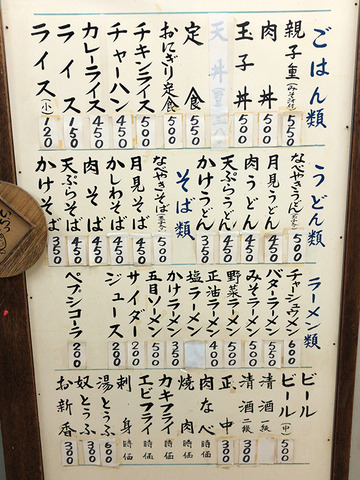 ごはん類
親子重(みそ汁付) 550
肉丼 500
玉子丼 500
天丼
定食 550
おにぎり定食 500
チキンライス 500
チャーハン 450
カレーライス 450
ライス 150
ライス(小) 120
うどん類
なべやきうどん 500
月見うどん 450
肉うどん 450
天ぷらうどん 450
かけうどん 350
そば類
なべやきそば 500
月見そば 450
かしわそば 450
肉そば 450
天ぷらそば 450
かけそば 350
ラーメン類
チャーシュウメン 600
バターラーメン 550
みそラーメン 500
野菜ラーメン 500
正油ラーメン 400
塩ラーメン
かけラーメン 350
五目ソーメン 500
サイダー 200
ジュース 200
ペプシコーラ 200
ビール
ビール(中) 500
清酒一級
清酒二級 300
正中 300
肉なべ 時価
焼肉 時価
カキフライ 時価
エビフライ 時価
刺身 時価
湯とうふ 600
奴とうふ 300
お新香 300